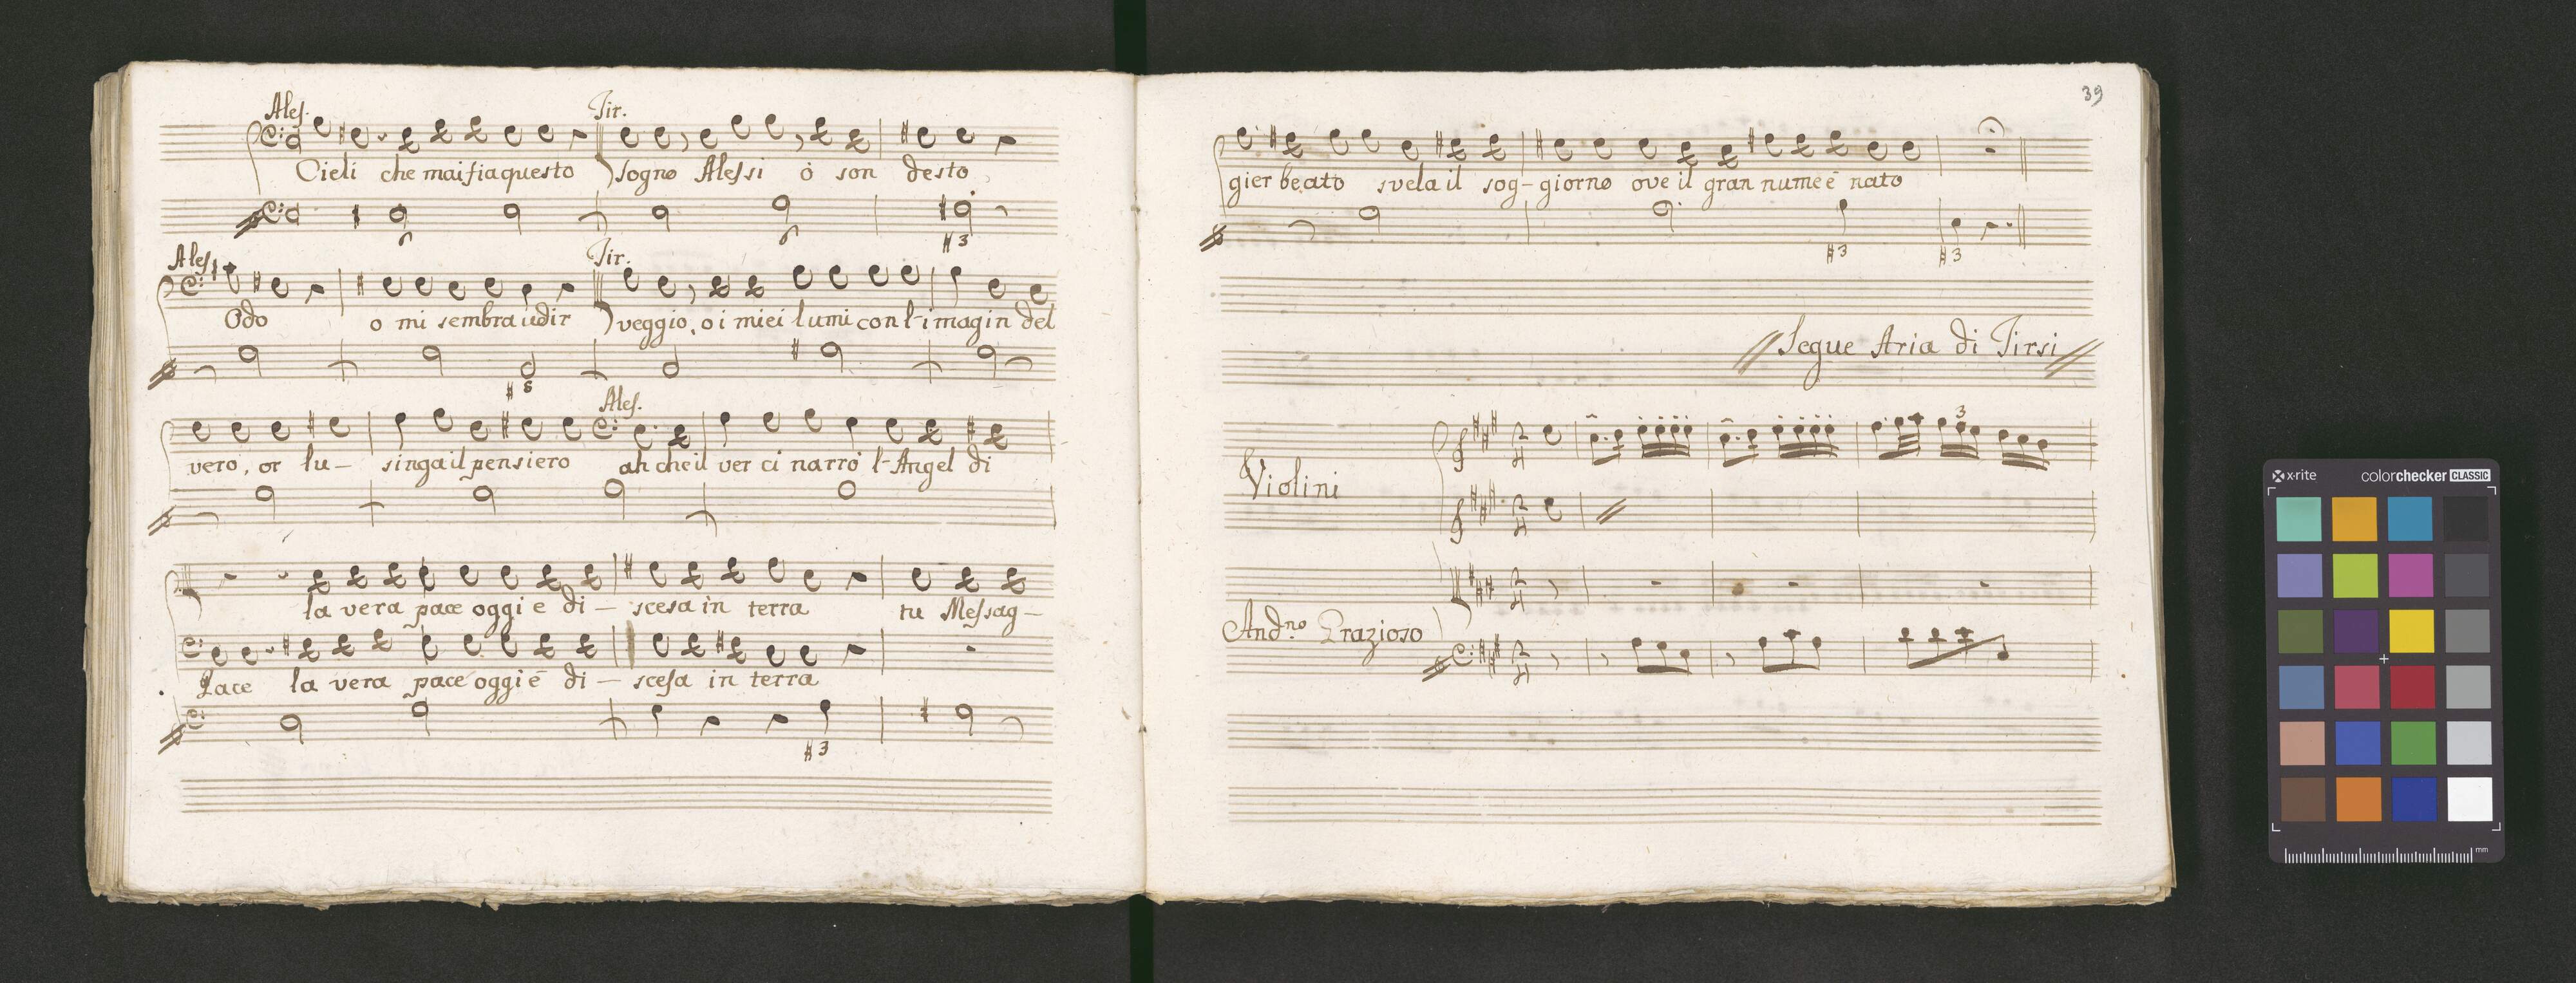 Ales. Tir.
Cieli che mai fia questo sogno Alessi ò son desto
6 6 #3
Ales. Tir.
Odo o mi sembra udir veggio, o i miei lumi con l-imagin del
#6
Ales.
vero, or lu- singa il pensiero ah che il ver ci narrò l-Angel di
la vera pace oggi e di- scesa in terra tu Messag-
Pace la vera pace oggi è di- scesa in terra
#3
39
gier beato svela il sog- giorno ove il gran nume è nato
#3 #3
Segue Aria di Tirsi
3
Violini
And.no Grazioso
x-rite colorchecker CLASSIC
mm